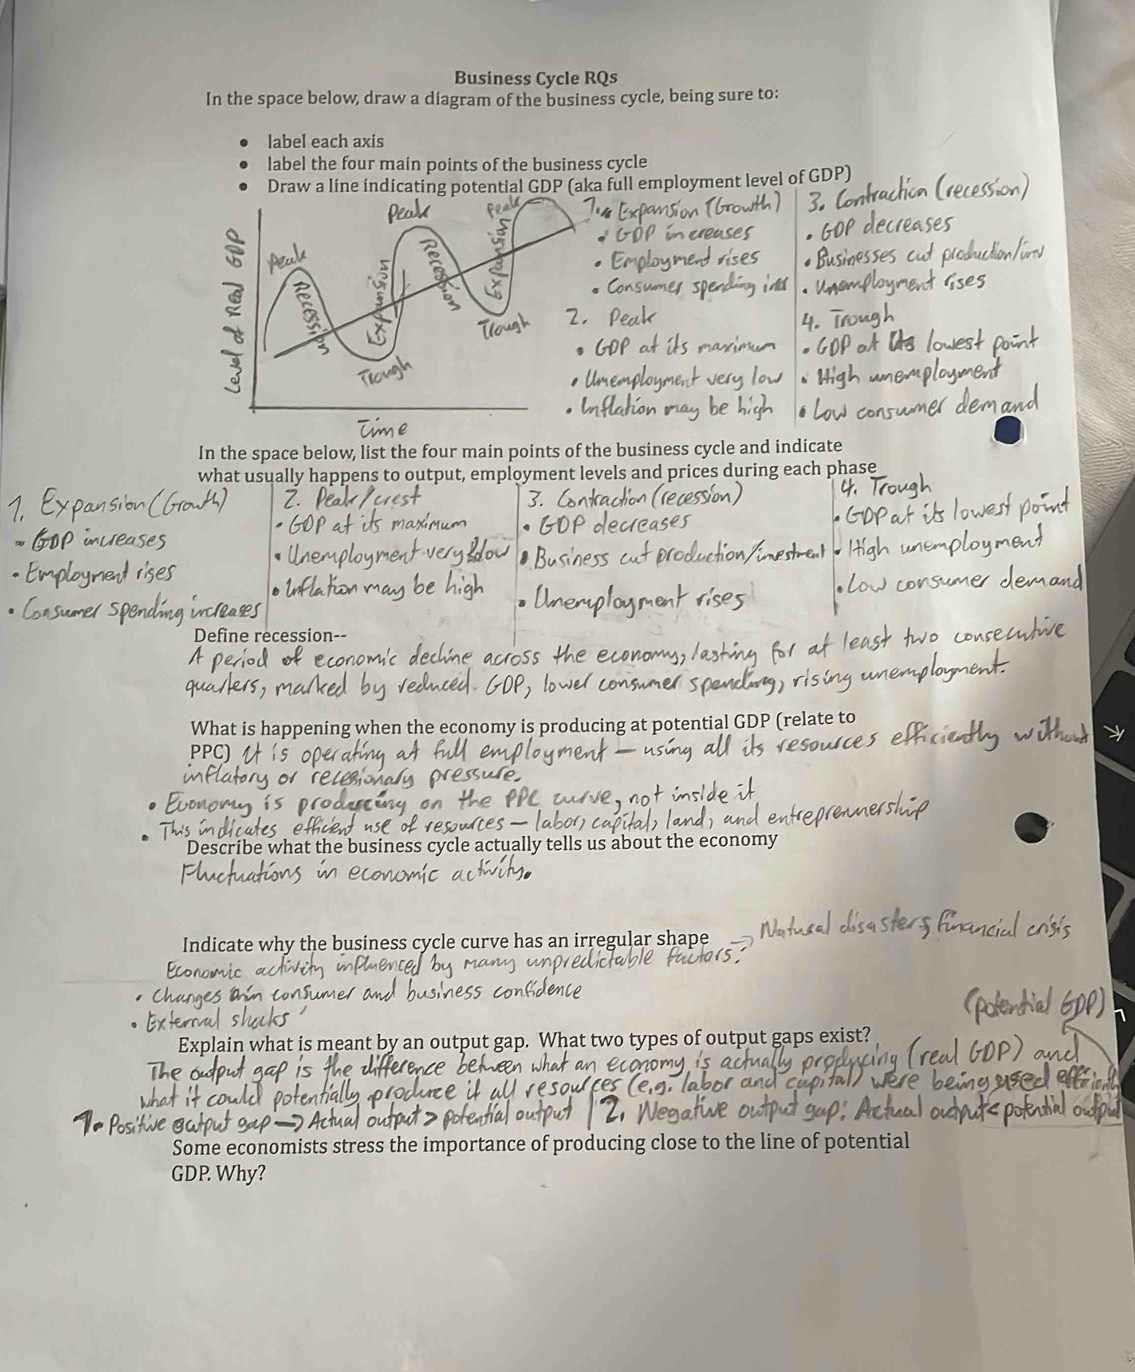 Business Cycle RQs
In the space below, draw a diagram of the business cycle, being sure to:
• label each axis
• label the four main points of the business cycle
• Draw a line indicating potential GDP (aka full employment level of GDP)
Level of Real GDP
Peak
Recession
Trough
Expansion
Peak
Recession
Trough
Expansion
Peak
Time
1. Expansion (Growth)
• GDP increases
• Employment rises
• Consumer spending
2. Peak
• GDP at its maximum
• Umemployment very low
• Inflation may be high
3. Contraction (recession)
• GDP decreases
• Businesses cut production/
• Unemployment rises
4. Trough
• GDP at its lowest point
• High unemployment
• Low consumer demand
In the space below, list the four main points of the business cycle and indicate
what usually happens to output, employment levels and prices during each phase
1. Expansion (Growth)
- GDP increases
• Employment rises
• Consumer spending increases
2. Peak/crest
• GDP at its maximum
• Unemployment very low
• Inflation may be high
3. Contraction (recession)
• GDP decreases
• Business cut production/investment
• Unemployment rises
4. Trough
• GDP at its lowest point
• High unemployment
• Low consumer demand
Define recession--
A period of economic decline across the economy, lasting for at least two consecutive
quarters, marked by reduced GDP, lower consumer spending, rising unemployment.
What is happening when the economy is producing at potential GDP (relate to
PPC) It is operating at full employment – using all its resources efficiently without
inflatory or recessionary pressure.
• Economy is producing on the PPC curve, not inside it
• This indicates efficient use of resources – labor, capital, land, and entreprennership
Describe what the business cycle actually tells us about the economy
Fluctuations in economic activity.
Indicate why the business cycle curve has an irregular shape
Economic activity influenced by many unpredictable factors:
→ Natural disasters, financial crisis
• Changes in consumer and business confidence
• External shocks
(potential GDP)
Explain what is meant by an output gap. What two types of output gaps exist?
The output gap is the difference between what an economy is actually producing (real GDP) and
what it could potentially produce if all resources (e.g. labor and capital) were being used efficiently
1. Positive output gap → Actual output > potential output | 2. Negative output gap: Actual output < potential output
Some economists stress the importance of producing close to the line of potential
GDP. Why?